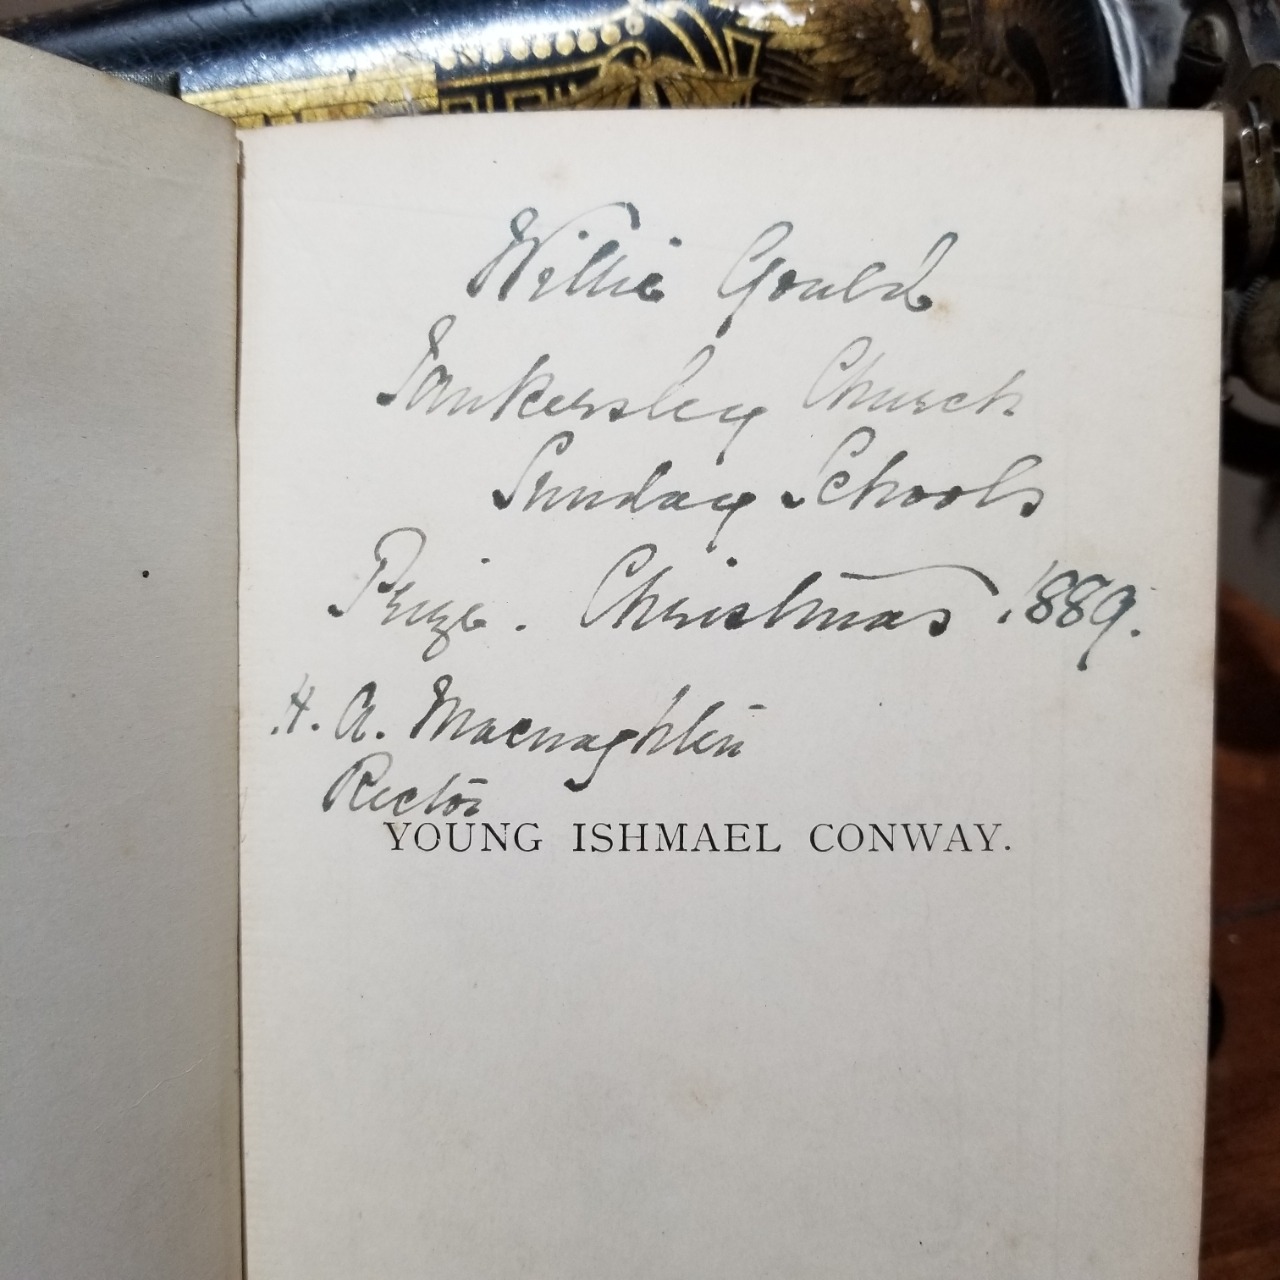 Willie Gould
Tankersley Church
Sunday Schools
Prize. Christmas. 1889.
H. A. Macnaghten
Rector
YOUNG ISHMAEL CONWAY.